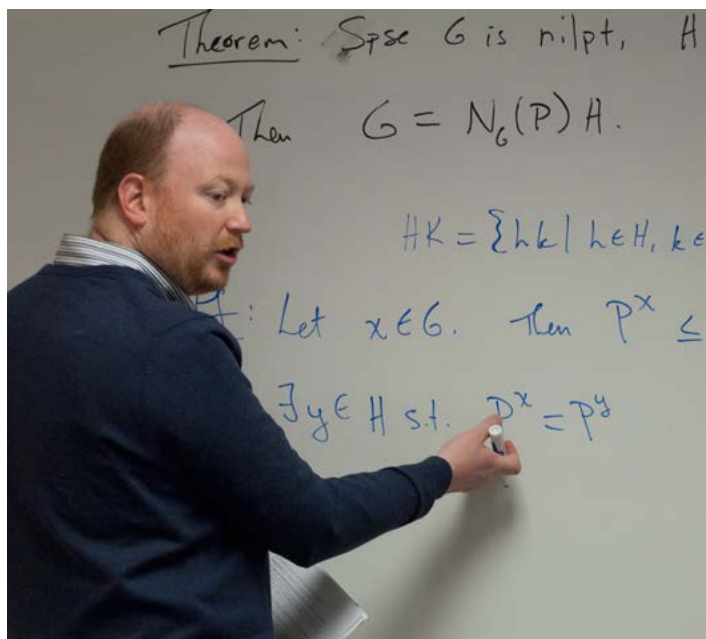 Theorem: Spse G is nilpt, H
Then G = N_G(P) H.
HK = {hk | h∈H, k∈
: Let x∈G. Then P^x ≤
∃y∈ H s.t. P^x = P^y